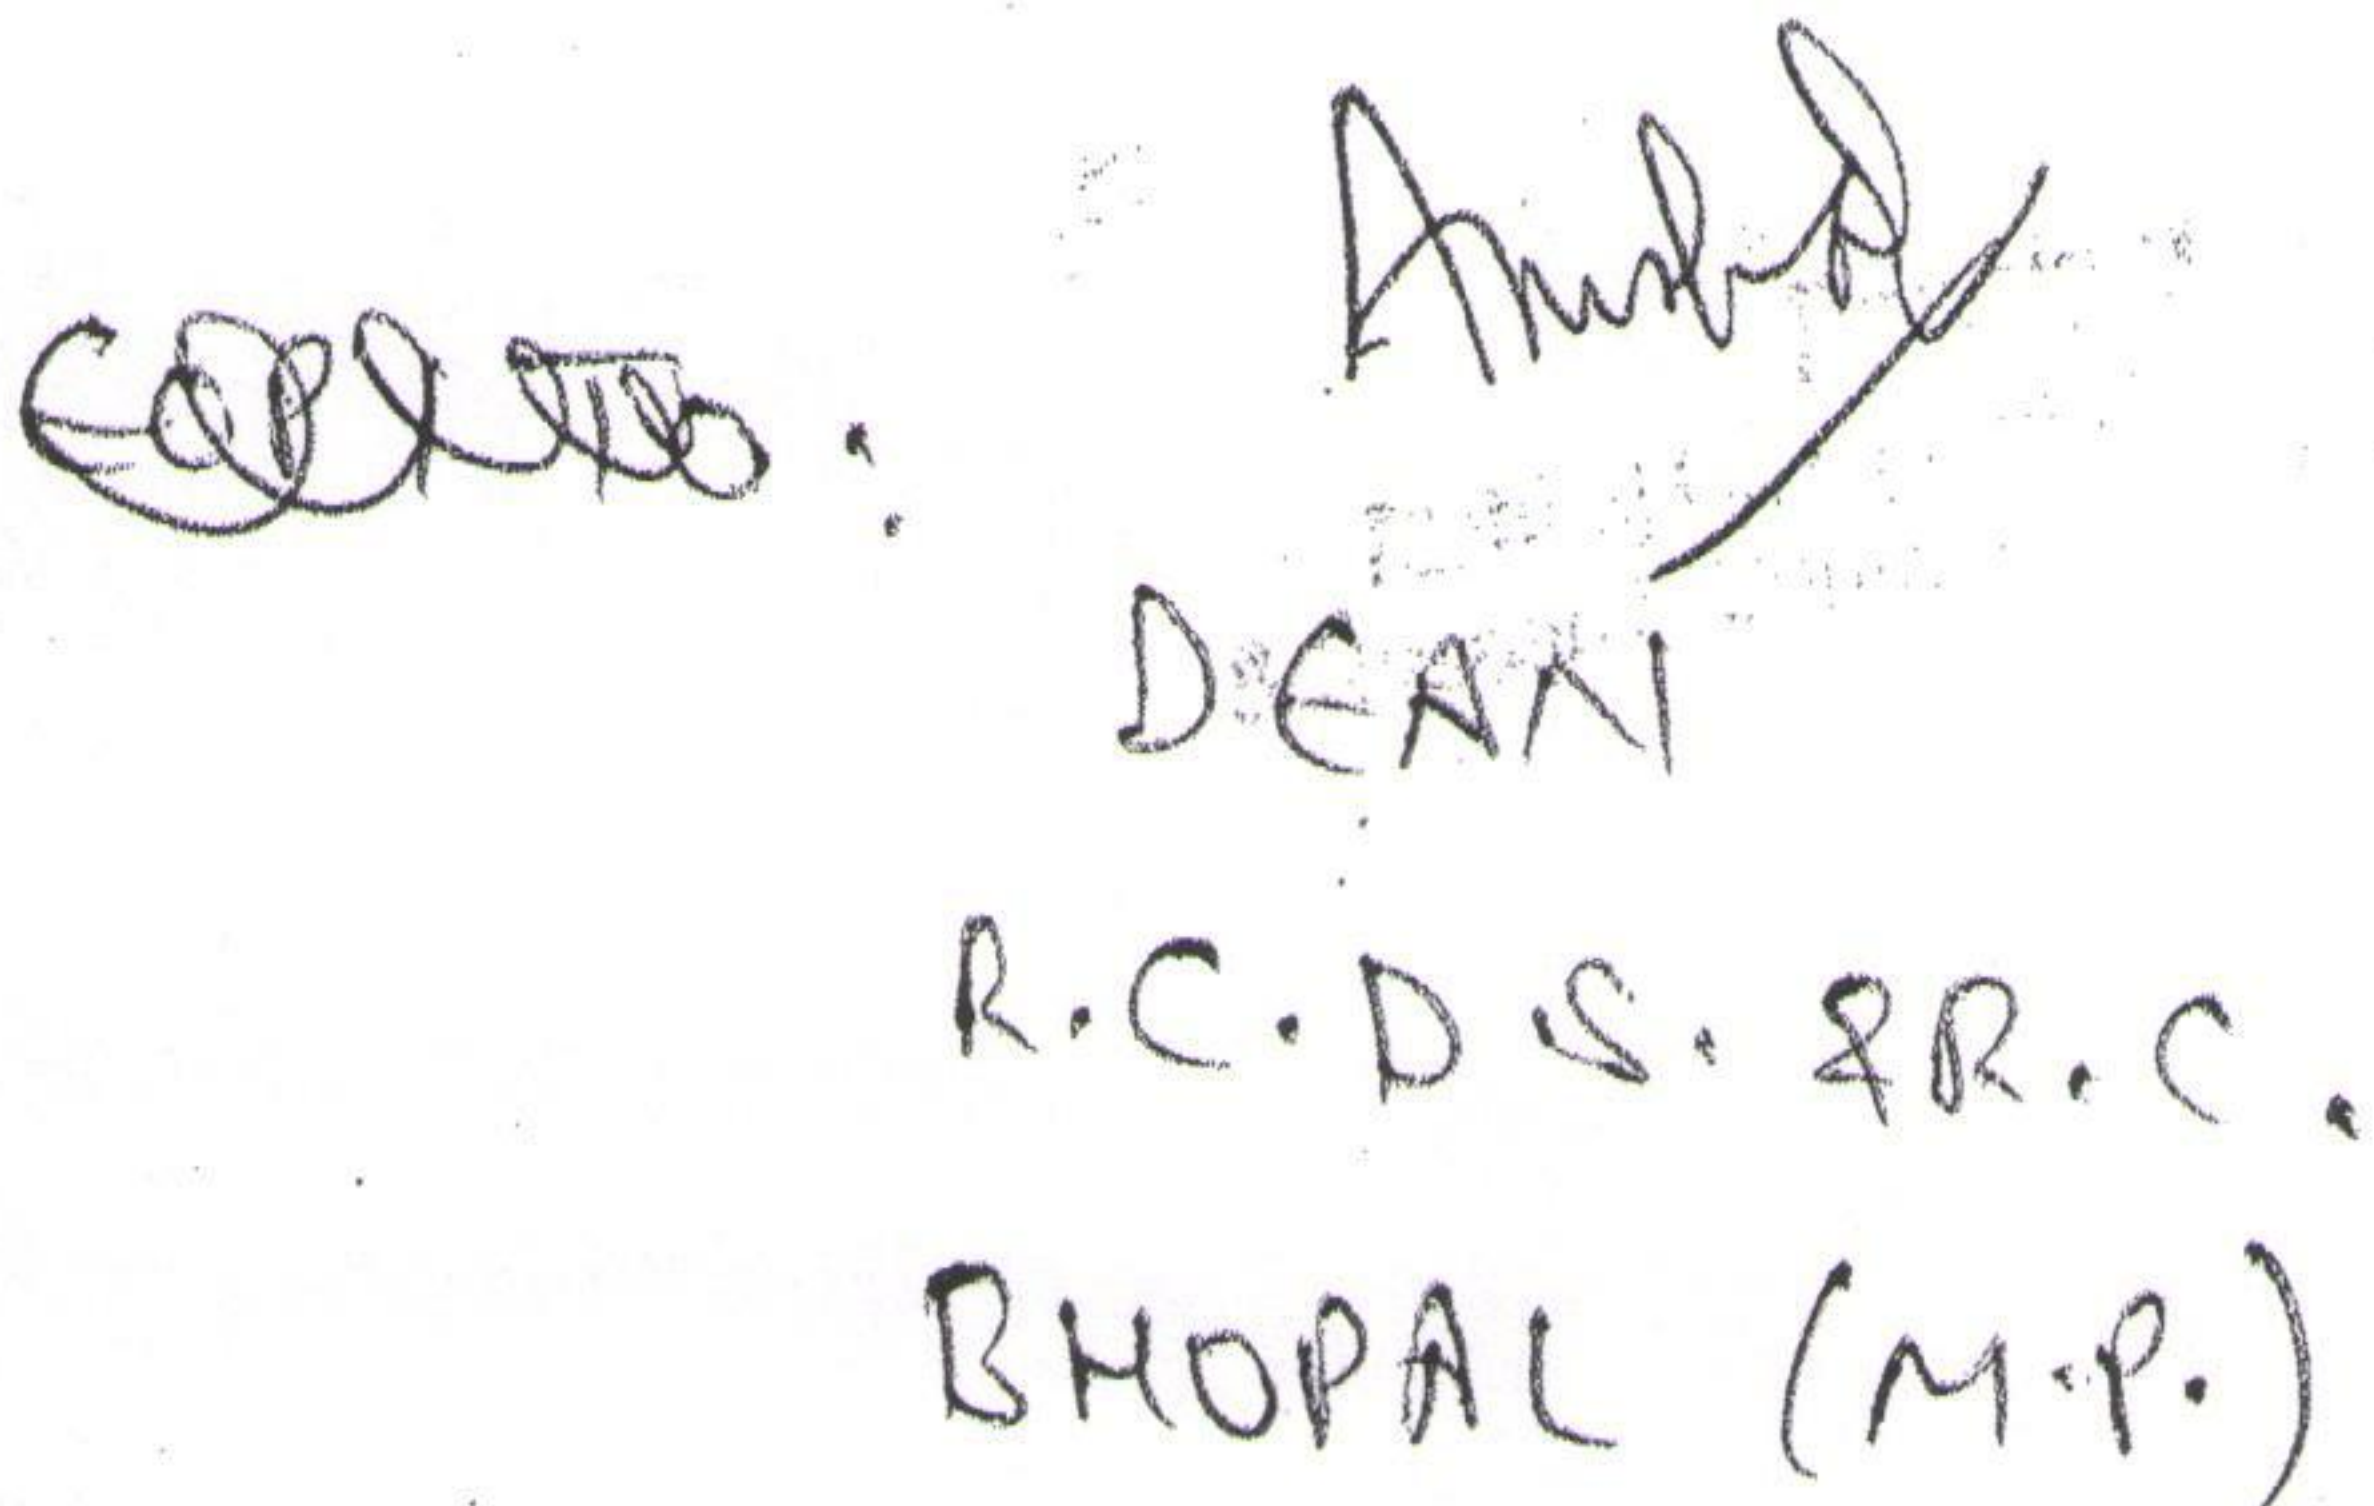 DEAN
R.C.D S. & R.C.
BHOPAL (M.P.)